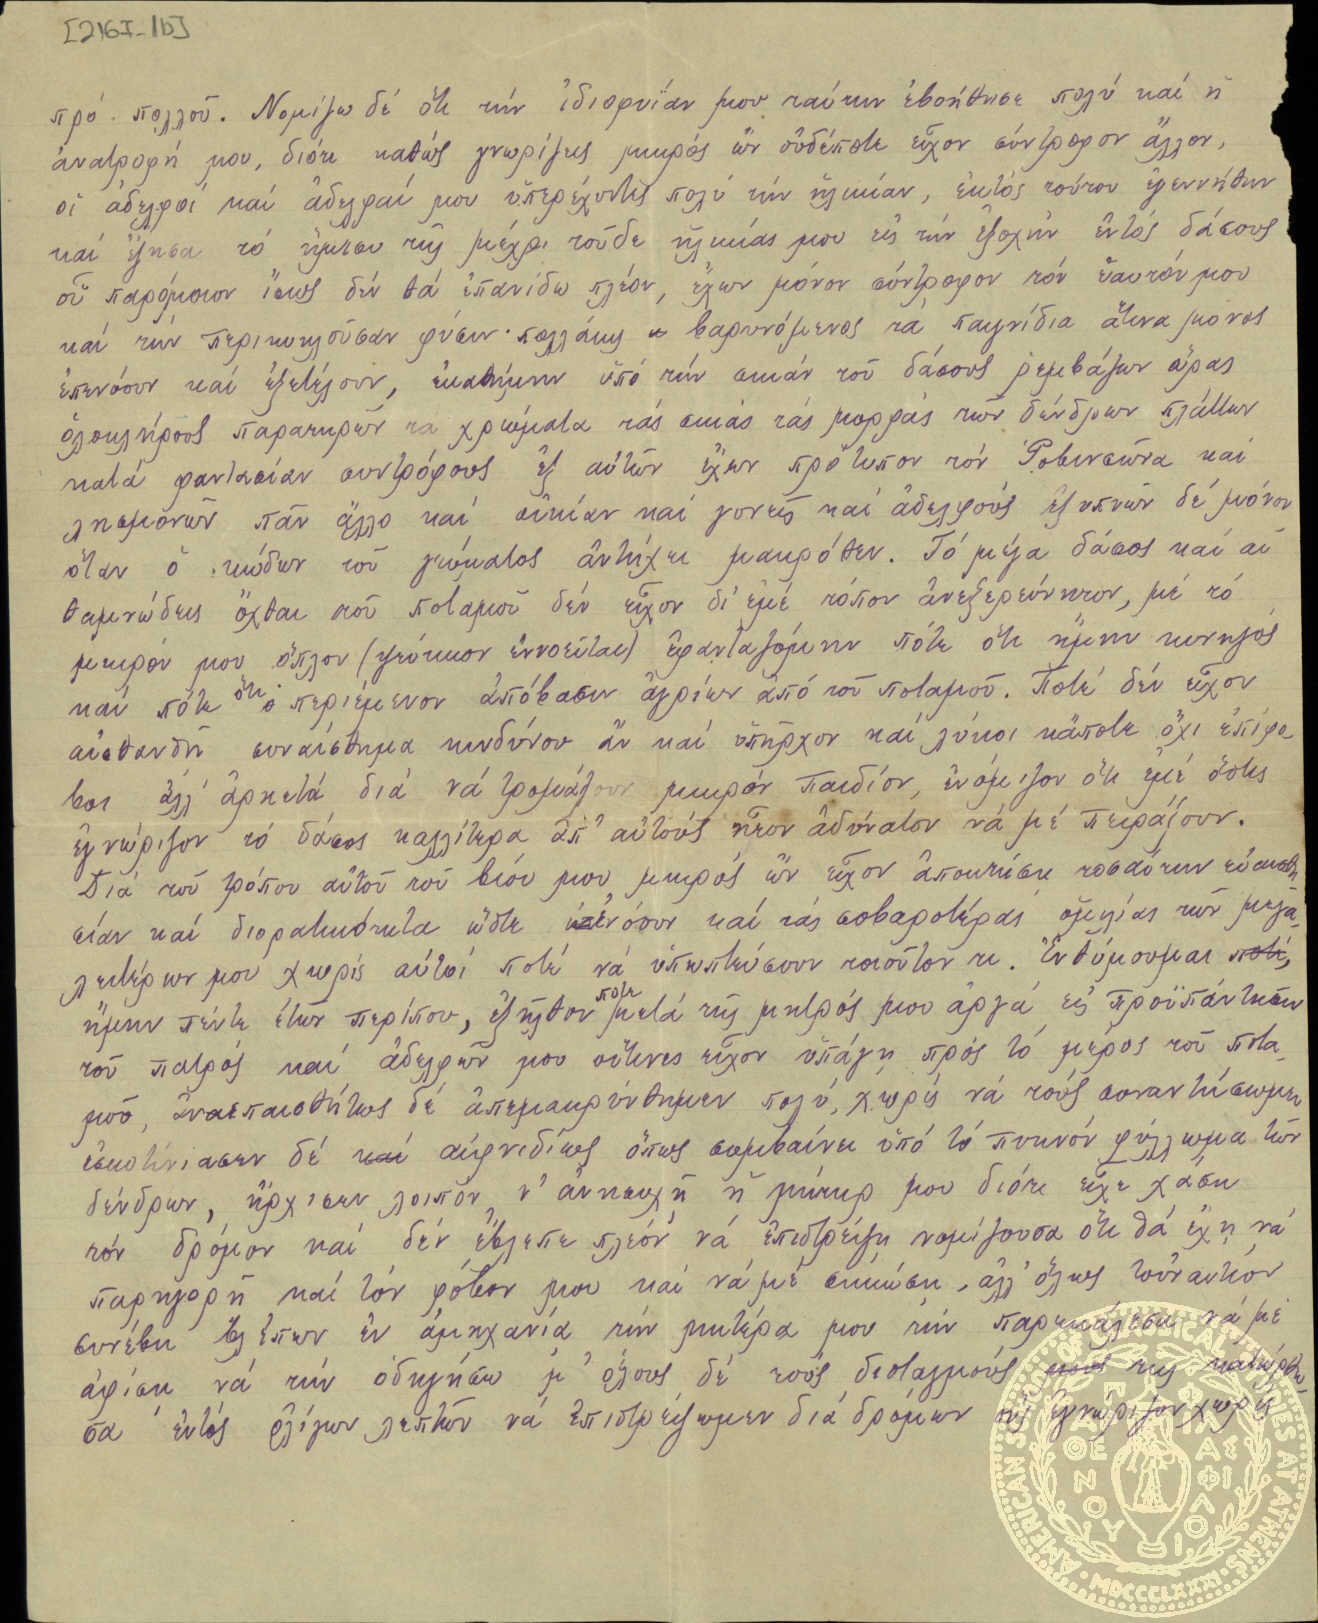 [216I-1b]
πρό πολλοῦ. Νομίζω δέ ὅτι τήν ἰδιοφυΐαν μου ταύτην ἐβοήθησε πολύ καί ἡ
ἀνατροφή μου, διότι καθώς γνωρίζεις μικρός ὤν οὐδέποτε εἶχον σύντροφον ἄλλον,
οἱ ἀδελφοί καί ἀδελφαί μου ὑπερέχοντες πολύ τήν ἡλικίαν, ἐκτός τούτου ἐγεννήθην
καί ἔζησα τό ἥμισυ τῆς μέχρι τοῦδε ἡλικίας μου εἰς τήν ἐξοχήν ἐντός δάσους
οὗ παρόμοιον ἴσως δέν θά ἐπανίδω πλέον, ἔχων μόνον σύντροφον τόν ἑαυτόν μου
καί τήν περικυκλοῦσαν φύσιν· πολλάκις βαρυνόμενος τά παιγνίδια ἅτινα μόνος
ἐπενόουν καί ἐξετέλουν, ἐκαθήμην ὑπό τήν σκιάν τοῦ δάσους ρεμβάζων ὥρας
ὁλοκλήρους παρατηρῶν τά χρώματα τάς σκιάς τάς μορφάς τῶν δένδρων πλάττων
κατά φαντασίαν συντρόφους ἐξ αὐτῶν ἔχων πρότυπον τόν Ροβινσῶνα καί
λησμονῶν πᾶν ἄλλο καί οἰκίαν καί γονεῖς καί ἀδελφούς ἐξυπνῶν δέ μόνον
ὅταν ὁ κώδων τοῦ γεύματος ἀντήχει μακρόθεν. Τό μέγα δάσος καί αἱ
θαμνώδεις ὄχθαι τοῦ ποταμοῦ δέν εἶχον δι' ἐμέ τόπον ἀνεξερεύνητον, μέ τό
μικρόν μου ὅπλον (ψεύτικον ἐννοεῖται) ἐφανταζόμην πότε ὅτι ἤμην κυνηγός
καί πότε ὅτι περιέμενον ἀπόβασιν ἀγρίων ἀπό τοῦ ποταμοῦ. Ποτέ δέν εἶχον
αἰσθανθῆ συναίσθημα κινδύνου ἄν καί ὑπῆρχον καί λύκοι κάποτε ὄχι ἐπίφο-
βοι ἀλλ' ἀρκετά διά νά τρομάξουν μικρόν παιδίον, ἐνόμιζον ὅτι ἐμέ ὅστις
ἐγνώριζον τό δάσος καλλίτερα ἀπ' αὐτούς ἦτον ἀδύνατον νά μέ πειράξουν.
Διά τοῦ τρόπου αὐτοῦ τοῦ βίου μου μικρός ὤν εἶχον ἀποκτήσει τοσαύτην εὐαισθη-
σίαν καί διορατικότητα ὥστε ἐνόουν καί τάς σοβαροτέρας ὁμιλίας τῶν μεγα-
λειτέρων μου χωρίς αὐτοί ποτέ νά ὑποπτεύσουν τοιοῦτον τι. Ἐνθυμοῦμαι ποτέ,
ἤμην πέντε ἐτῶν περίπου, ἐξῆλθον ποτε μετά τῆς μητρός μου ἀργά εἰς προϋπάντησιν
τοῦ πατρός καί ἀδελφῶν μου οἵτινες εἶχον ὑπάγη πρός τό μέρος τοῦ ποτα-
μοῦ, ἀνεπαισθήτως δέ ἀπεμακρύνθημεν πολύ, χωρίς νά τούς συναντήσωμεν
ἐσκοτίνιασεν δέ καί αἰφνιδίως ὅπως συμβαίνει ὑπό τό πυκνόν φύλλωμα τῶν
δένδρων, ἤρχισεν λοιπόν ν' ἀνησυχῆ ἡ μήτηρ μου διότι εἶχε χάσει
τόν δρόμον καί δέν ἔβλεπε πλέον νά ἐπιστρέψη νομίζουσα ὅτι θά ἔχη νά
παρηγορῆ καί τόν φόβον μου καί νά μέ σηκώση, ἀλλ' ὅλως τοὐναντίον
συνέβη βλέπων ἐν ἀμηχανία τήν μητέρα μου τήν παρεκάλεσα νά μέ
ἀφίση νά τήν ὁδηγήσω μ' ὅλους δέ τούς δισταγμούς της κατώρθω-
σα ἐντός ὀλίγων λεπτῶν νά ἐπιστρέψωμεν διά δρόμων οὕς ἐγνώριζον χωρίς
AMERICAN SCHOOL OF CLASSICAL STUDIES AT ATHENS
MDCCCLXXXI
ΠΑΡΘΕΝΟΥ ΦΙΛΑΣ ΦΙΛΙΟΙ